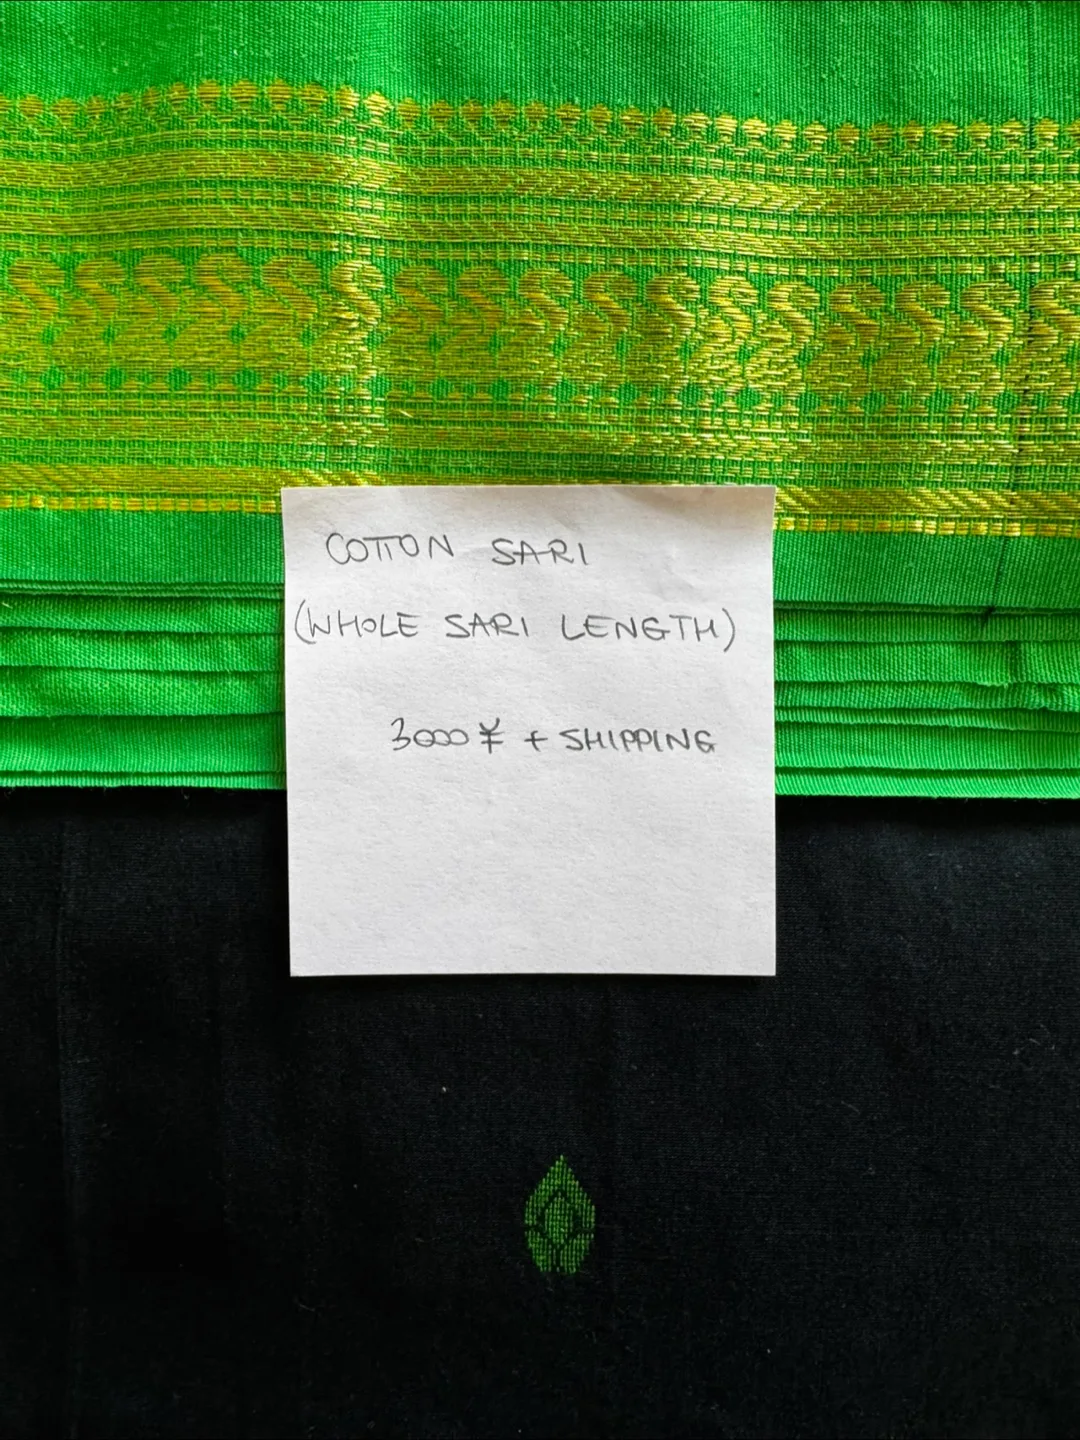 COTTON SARI
(WHOLE SARI LENGTH)
3000 ¥ + SHIPPING